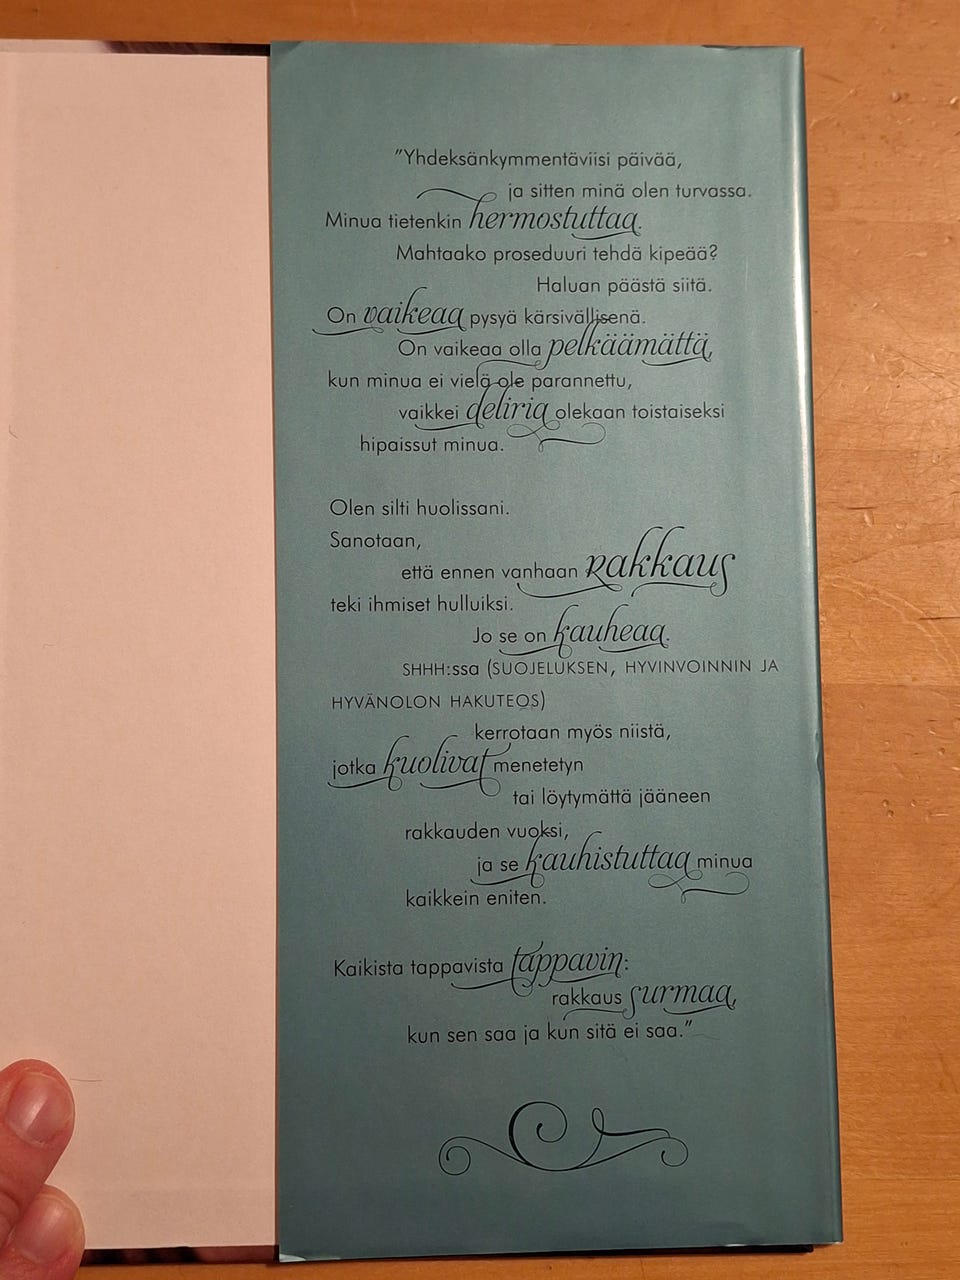 ”Yhdeksänkymmentäviisi päivää,
ja sitten minä olen turvassa.
Minua tietenkin hermostuttaa.
Mahtaako proseduuri tehdä kipeää?
Haluan päästä siitä.
On vaikeaa pysyä kärsivällisenä.
On vaikeaa olla pelkäämättä,
kun minua ei vielä ole parannettu,
vaikkei deliria olekaan toistaiseksi
hipaissut minua.
Olen silti huolissani.
Sanotaan,
että ennen vanhaan rakkaus
teki ihmiset hulluiksi.
Jo se on kauheaa.
SHHH:ssa (SUOJELUKSEN, HYVINVOINNIN JA
HYVÄNOLON HAKUTEOS)
kerrotaan myös niistä,
jotka kuolivat menetetyn
tai löytymättä jääneen
rakkauden vuoksi,
ja se kauhistuttaa minua
kaikkein eniten.
Kaikista tappavista tappavin:
rakkaus surmaa,
kun sen saa ja kun sitä ei saa.”